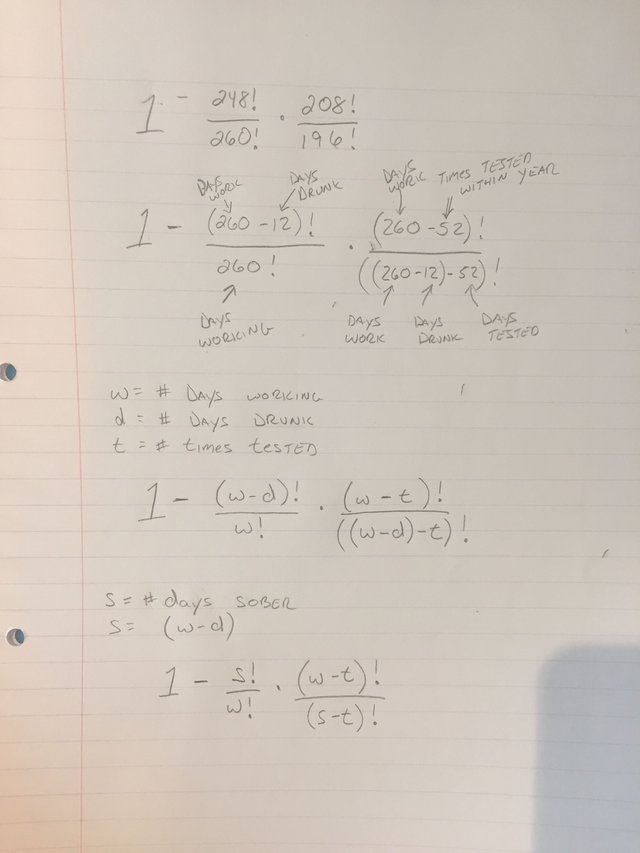 1 - 248!/260! · 208!/196!
DAYS WORK DAYS DRUNK DAYS WORK TIMES TESTED WITHIN YEAR
1 - (260-12)!/260! · (260-52)!/((260-12)-52)!
DAYS WORKING DAYS WORK DAYS DRUNK DAYS TESTED
w = # DAYS WORKING
d = # DAYS DRUNK
t = # times tested
1 - (w-d)!/w! · (w-t)!/((w-d)-t)!
S = # days SOBER
S = (w-d)
1 - S!/w! · (w-t)!/(s-t)!